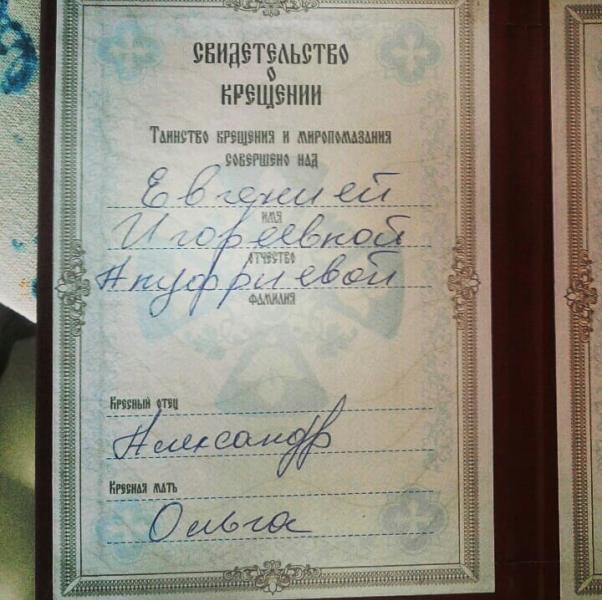 СВИДЕТЕЛЬСТВО
О
КРЕЩЕНИИ
ТАИНСТВО КРЕЩЕНИЯ И МИРОПОМАЗАНИЯ
СОВЕРШЕНО НАД
Евгенией
ИМЯ
Игоревной
ОТЧЕСТВО
Ануфриевой
ФАМИЛИЯ
КРЕСНЫЙ ОТЕЦ
Александр
КРЕСНАЯ МАТЬ
Ольга